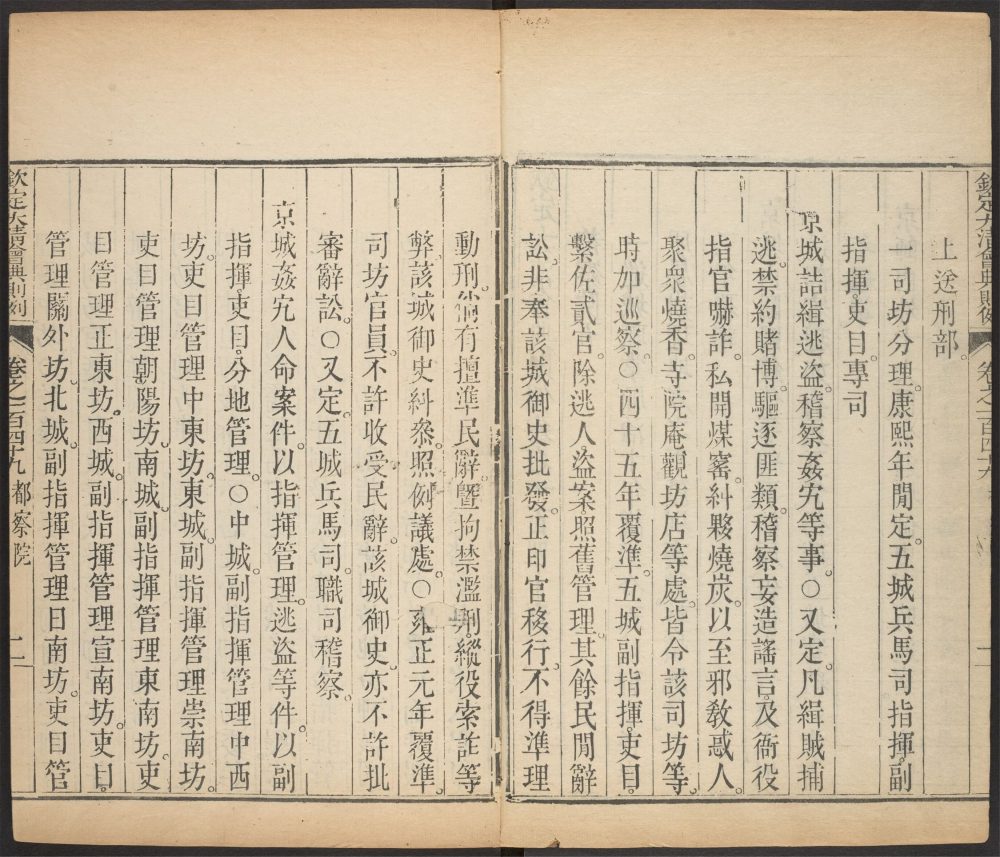 欽定大清會典則例
卷之一百四十九
一
上送刑部。
一司坊分理。康熙年閒定。五城兵馬司指揮。副
指揮。吏目。專司
京城詰緝逃盜。稽察姦宄等事。○又定。凡緝賊捕
逃。禁約賭博。驅逐匪類。稽察妄造謠言。及衙役
指官嚇詐。私開煤窰。糾夥燒炭。以至邪敎惑人。
聚衆燒香。寺院庵觀坊店等處。皆令該司坊等。
時加巡察。○四十五年覆準。五城副指揮。吏目。
繫佐貳官。除逃人盜案照舊管理。其餘民閒辭
訟。非奉該城御史批發。正印官移行。不得準理
動刑。倘有擅準民辭。曁拘禁濫刑。縱役索詐等
弊。該城御史糾叅。照例議處。○雍正元年覆準。
司坊官員。不許收受民辭。該城御史。亦不許批
審辭訟。○又定。五城兵馬司。職司稽察。
京城姦宄人命案件。以指揮管理。逃盜等件。以副
指揮。吏目。分地管理。○中城。副指揮管理中西
坊。吏目管理中東坊。東城。副指揮管理崇南坊。
吏目管理朝陽坊。南城。副指揮管理東南坊。吏
目管理正東坊。西城。副指揮管理宣南坊。吏目。
管理關外坊。北城。副指揮管理日南坊。吏目管
欽定大清會典則例
卷之一百四十九 都察院
二